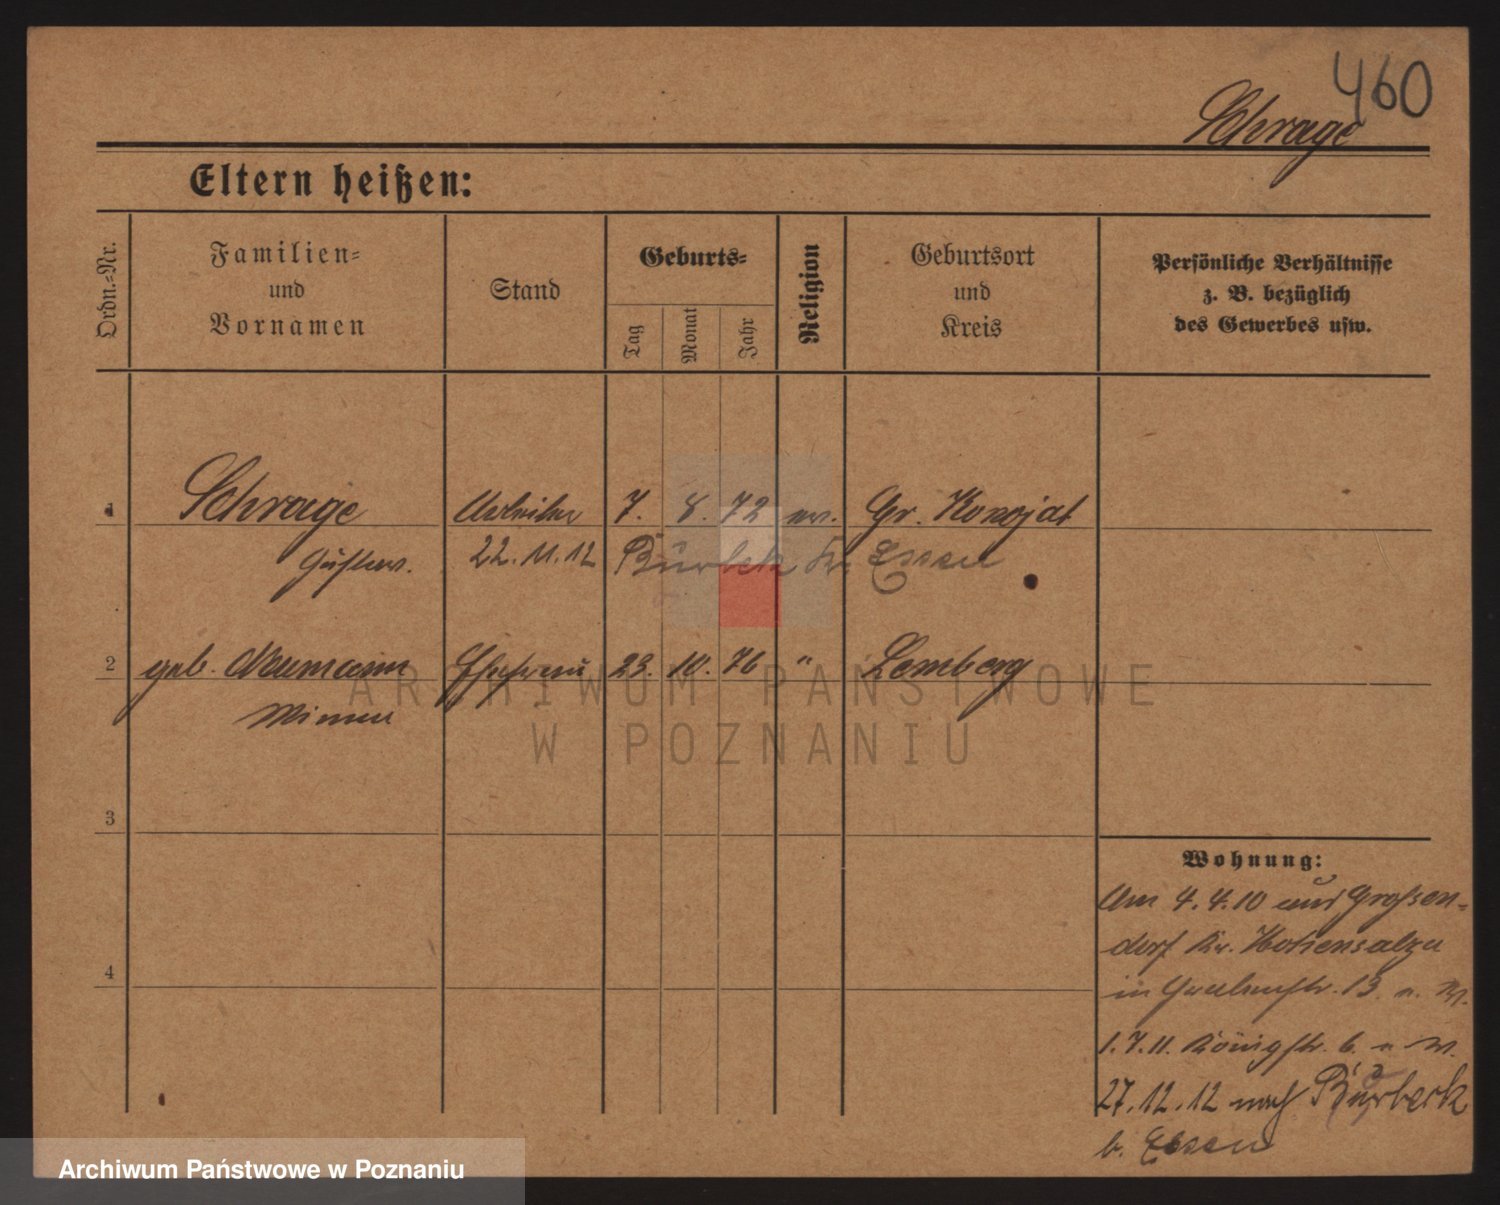 460
Schrage
Eltern heißen:
Ordn.-Nr.
Familien- und Vornamen
Stand
Geburts-
Tag
Monat
Jahr
Religion
Geburtsort und Kreis
Persönliche Verhältnisse z. B. bezüglich des Gewerbes usw.
1 Schrage Arbeiter 7. 8. 72 ev. Gr. Konojat
Gustav. 22.11.12 Kr. Essen
2 geb. Neumann Ehefrau 23. 10. 76 " Lemberg
3
4
Wohnung:
Am 4.4.10 aus Grossen-
dorf Kr. Hohensalza
in 13
1.7.11. Königstr. 6.
27.12.12 nach
b. Essen
ARCHIWUM PAŃSTWOWE
W POZNANIU
Archiwum Państwowe w Poznaniu